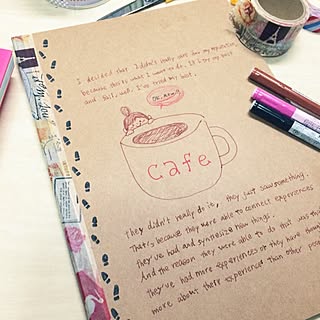 I decided that I didn't really care about my reputation,
because this is what I want to do. If I try my best
and fail, well, I've tried my best.
cafe
they didn't really do it, they just saw something.
That's because they were able to connect experiences
they've had and synthesize new things.
And the reason they were able to do that was
they've had more experiences or they have
more about their experience than other